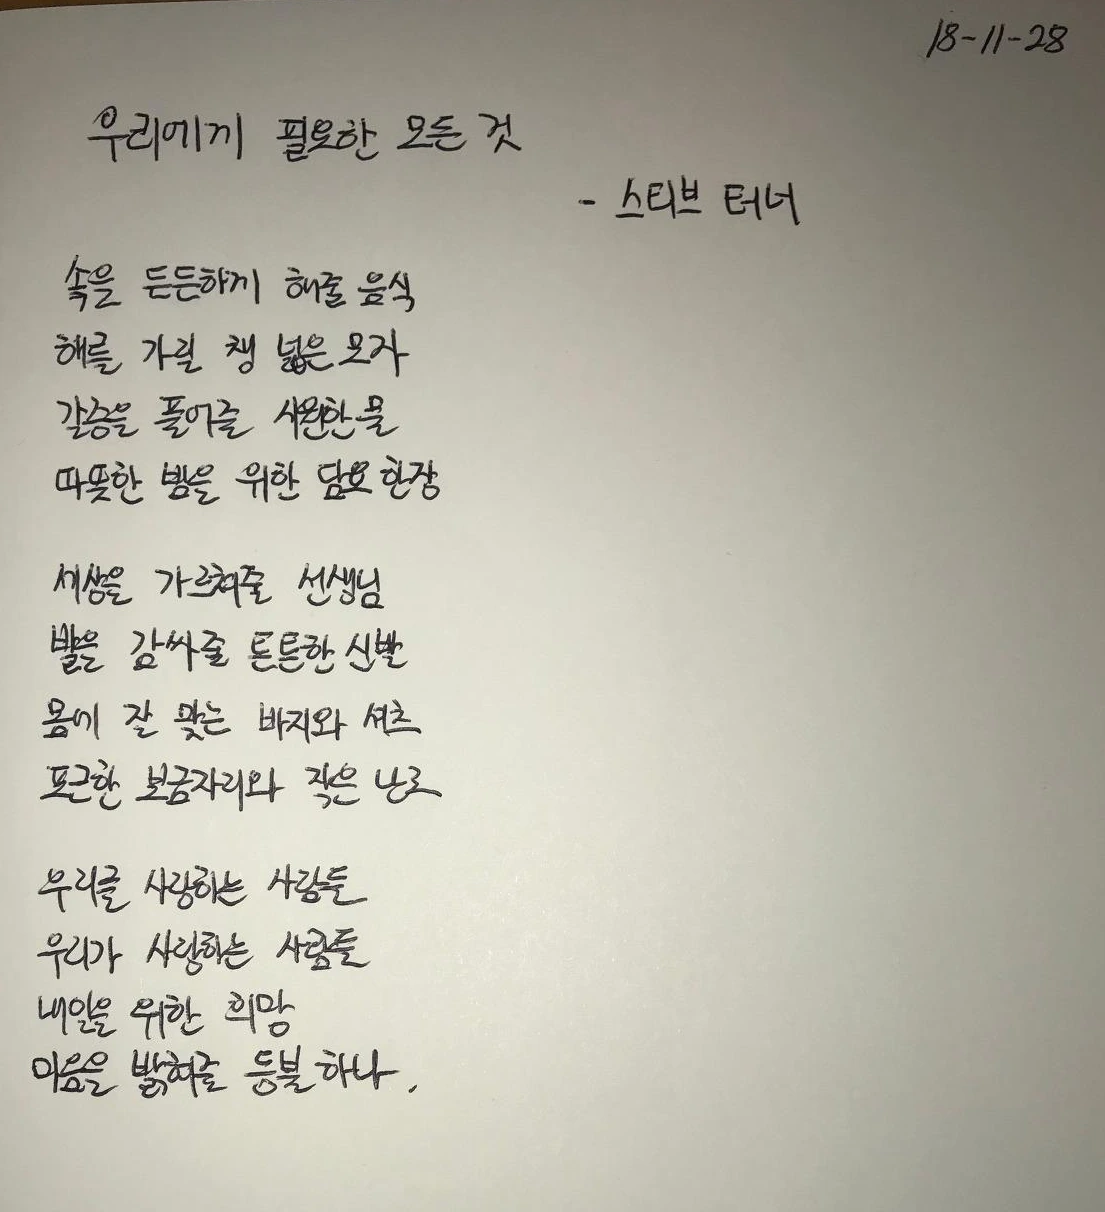 18-11-28
우리에게 필요한 모든 것
- 스티브 터너
속을 든든하게 해줄 음식
해를 가릴 챙 넓은 모자
갈증을 풀어줄 시원한 물
따뜻한 밤을 위한 담요 한장
세상을 가르쳐줄 선생님
발을 감싸줄 튼튼한 신발
몸에 잘 맞는 바지와 셔츠
포근한 보금자리와 작은 난로
우리를 사랑하는 사람들
우리가 사랑하는 사람들
내일을 위한 희망
마음을 밝혀줄 등불 하나.